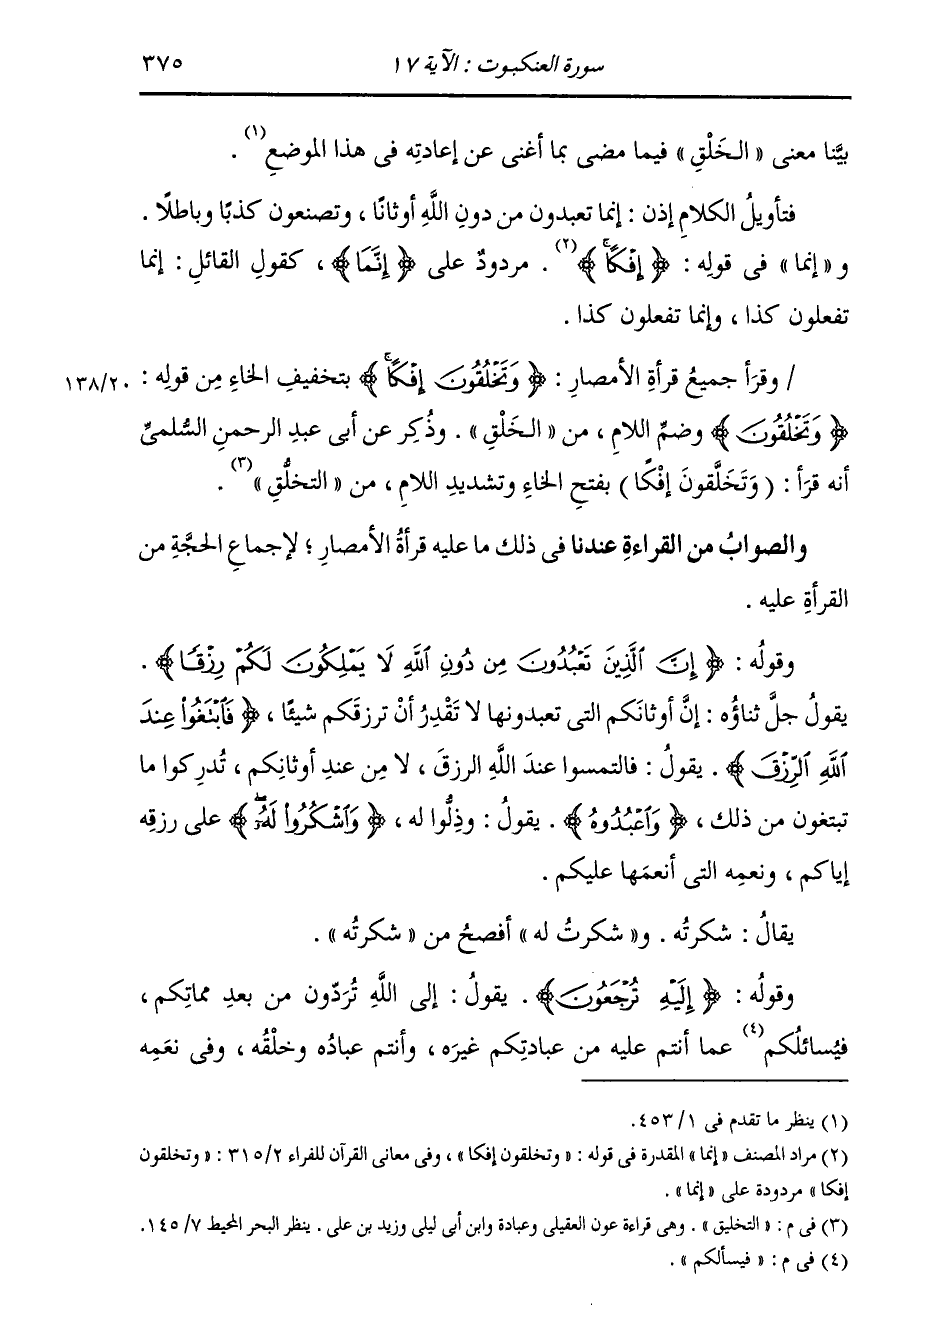 سورة العنكبوت : الآية ١٧ ٣٧٥
بيَّنا معنى « الـخَلْقِ » فيما مضى بما أغنى عن إعادتِه فى هذا الموضعِ(١) .
فتأويلُ الكلامِ إذن : إنما تعبدون من دونِ اللَّهِ أوثانًا ، وتصنعون كذبًا وباطلًا .
و « إنما » فى قولِه : ﴿ إِفْكًا ﴾(٢) . مردودٌ على ﴿ إِنَّمَا ﴾ ، كقولِ القائلِ : إنما
تفعلون كذا ، وإنما تفعلون كذا .
/ وقرَأ جميعُ قرأةِ الأمصارِ : ﴿ وَتَخْلُقُونَ إِفْكًا ﴾ بتخفيفِ الخاءِ مِن قولِه : ١٣٨/٢٠
﴿ وَتَخْلُقُونَ ﴾ وضمِّ اللامِ ، من « الـخَلْقِ » . وذُكِر عن أبى عبدِ الرحمنِ السُّلمىِّ
أنه قرَأ : ( وَتَخَلَّقونَ إفْكًا ) بفتحِ الخاءِ وتشديدِ اللامِ ، من « التخلُّقِ »(٣) .
والصوابُ من القراءةِ عندنا فى ذلك ما عليه قرأةُ الأمصارِ ؛ لإجماعِ الحجَّةِ من
القرأةِ عليه .
وقولُه : ﴿ إِنَّ ٱلَّذِينَ تَعْبُدُونَ مِن دُونِ ٱللَّهِ لَا يَمْلِكُونَ لَكُمْ رِزْقًا ﴾ .
يقولُ جلَّ ثناؤُه : إنَّ أوثانَكم التى تعبدونها لا تَقْدِرُ أنْ ترزقَكم شيئًا ، ﴿ فَٱبْتَغُوا۟ عِندَ
ٱللَّهِ ٱلرِّزْقَ ﴾ . يقولُ : فالتمسوا عندَ اللَّهِ الرزقَ ، لا مِن عندِ أوثانِكم ، تُدرِكوا ما
تبتغون من ذلك ، ﴿ وَٱعْبُدُوهُ ﴾ . يقولُ : وذِلُّوا له ، ﴿ وَٱشْكُرُوا۟ لَهُۥٓ ﴾ على رزقِه
إياكم ، ونعمِه التى أنعمَها عليكم .
يقالُ : شكرتُه . و« شكرتُ له » أفصحُ من « شكرتُه » .
وقولُه : ﴿ إِلَيْهِ تُرْجَعُونَ ﴾ . يقولُ : إلى اللَّهِ تُرَدّون من بعدِ مماتِكم ،
فيُسائلُكم(٤) عما أنتم عليه من عبادتِكم غيرَه ، وأنتم عبادُه وخلْقُه ، وفى نعَمِه
(١) ينظر ما تقدم فى ٤٥٣/١.
(٢) مراد المصنف « إنما » المقدرة فى قوله : « وتخلقون إفكا » ، وفى معانى القرآن للفراء ٣١٥/٢ : « وتخلقون
إفكا » مردودة على « إنما » .
(٣) فى م : « التخليق » . وهى قراءة عون العقيلى وعبادة وابن أبى ليلى وزيد بن على . ينظر البحر المحيط ١٤٥/٧.
(٤) فى م : « فيسألكم » .